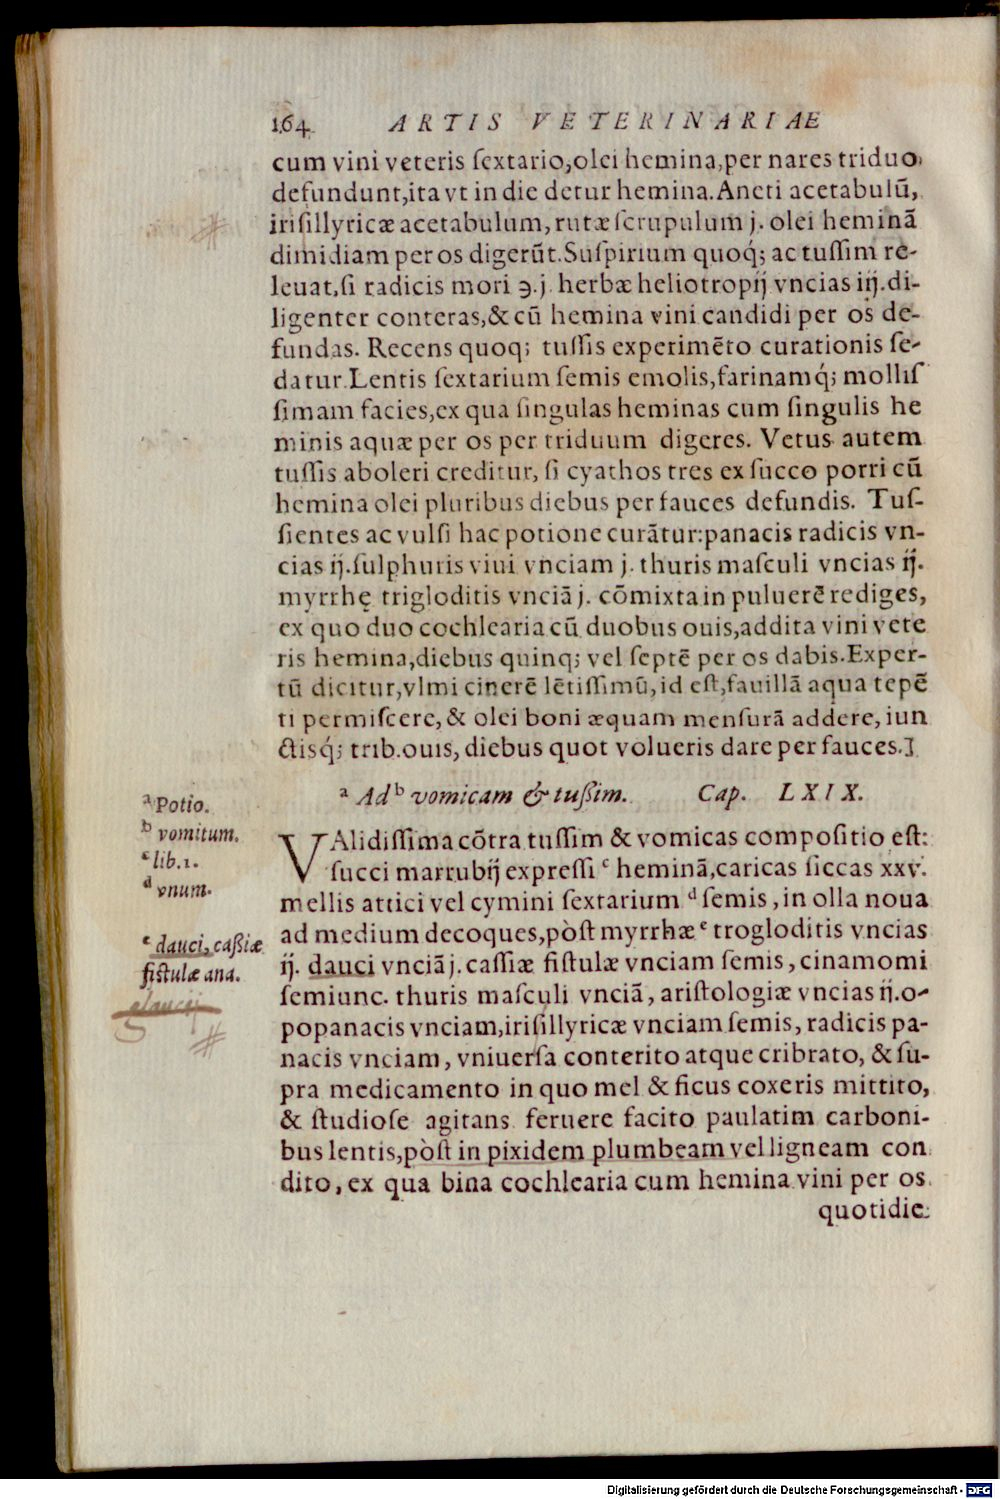 164 ARTIS VETERINARIAE
cum vini veteris ſextario, olei hemina, per nares triduo
defundunt, ita vt in die detur hemina. Aneti acetabulū,
iriſillyricæ acetabulum, rutæ ſcrupulum j. olei heminā
dimidiam per os digerūt. Suſpirium quoq́; ac tuſſim re-
leuat, ſi radicis mori ℈.j. herbæ heliotropij vncias iij. di-
ligenter conteras, & cū hemina vini candidi per os de-
fundas. Recens quoq; tuſſis experimēto curationis ſe-
datur. Lentis ſextarium ſemis emolis, farinamq́; molliſ
ſimam facies, ex qua ſingulas heminas cum ſingulis he
minis aquæ per os per triduum digeres. Vetus autem
tuſſis aboleri creditur, ſi cyathos tres ex ſucco porri cū
hemina olei pluribus diebus per fauces defundis. Tuſ-
ſientes ac vulſi hac potione curātur: panacis radicis vn-
cias ij. ſulphuris viui vnciam j. thuris maſculi vncias ij.
myrrhę trigloditis vnciā j. cōmixta in puluerē rediges,
ex quo duo cochlearia cū duobus ouis, addita vini vete
ris hemina, diebus quinq; vel ſeptē per os dabis. Exper-
tū dicitur, vlmi cinerē lētiſſimū, id eſt, fauillā aqua tepē
ti permiſcere, & olei boni æquam menſurā addere, iun
ctisq́; trib. ouis, diebus quot volueris dare per fauces.]
ᵃ Ad ᵇ vomicam & tußim. Cap. LXIX.
VAlidiſſima cōtra tuſſim & vomicas compoſitio eſt:
ſucci marrubij expreſſi ᶜ heminā, caricas ſiccas xxv.
mellis attici vel cymini ſextarium ᵈ ſemis, in olla noua
ad medium decoques, pòſt myrrhæ ᵉ trogloditis vncias
ij. dauci vnciā j. caſſiæ fiſtulæ vnciam ſemis, cinamomi
ſemiunc. thuris maſculi vnciā, ariſtologiæ vncias ij. o-
popanacis vnciam, iriſillyricæ vnciam ſemis, radicis pa-
nacis vnciam, vniuerſa conterito atque cribrato, & ſu-
pra medicamento in quo mel & ficus coxeris mittito,
& ſtudioſe agitans feruere facito paulatim carboni-
bus lentis, pòſt in pixidem plumbeam vel ligneam con
dito, ex qua bina cochlearia cum hemina vini per os
quotidie
ᵃ Potio.
ᵇ vomitum.
ᶜ lib. 1.
ᵈ vnum.
ᵉ dauci, caßiæ
fiſtulæ ana.
Digitalisierung gefördert durch die Deutsche Forschungsgemeinschaft - DFG